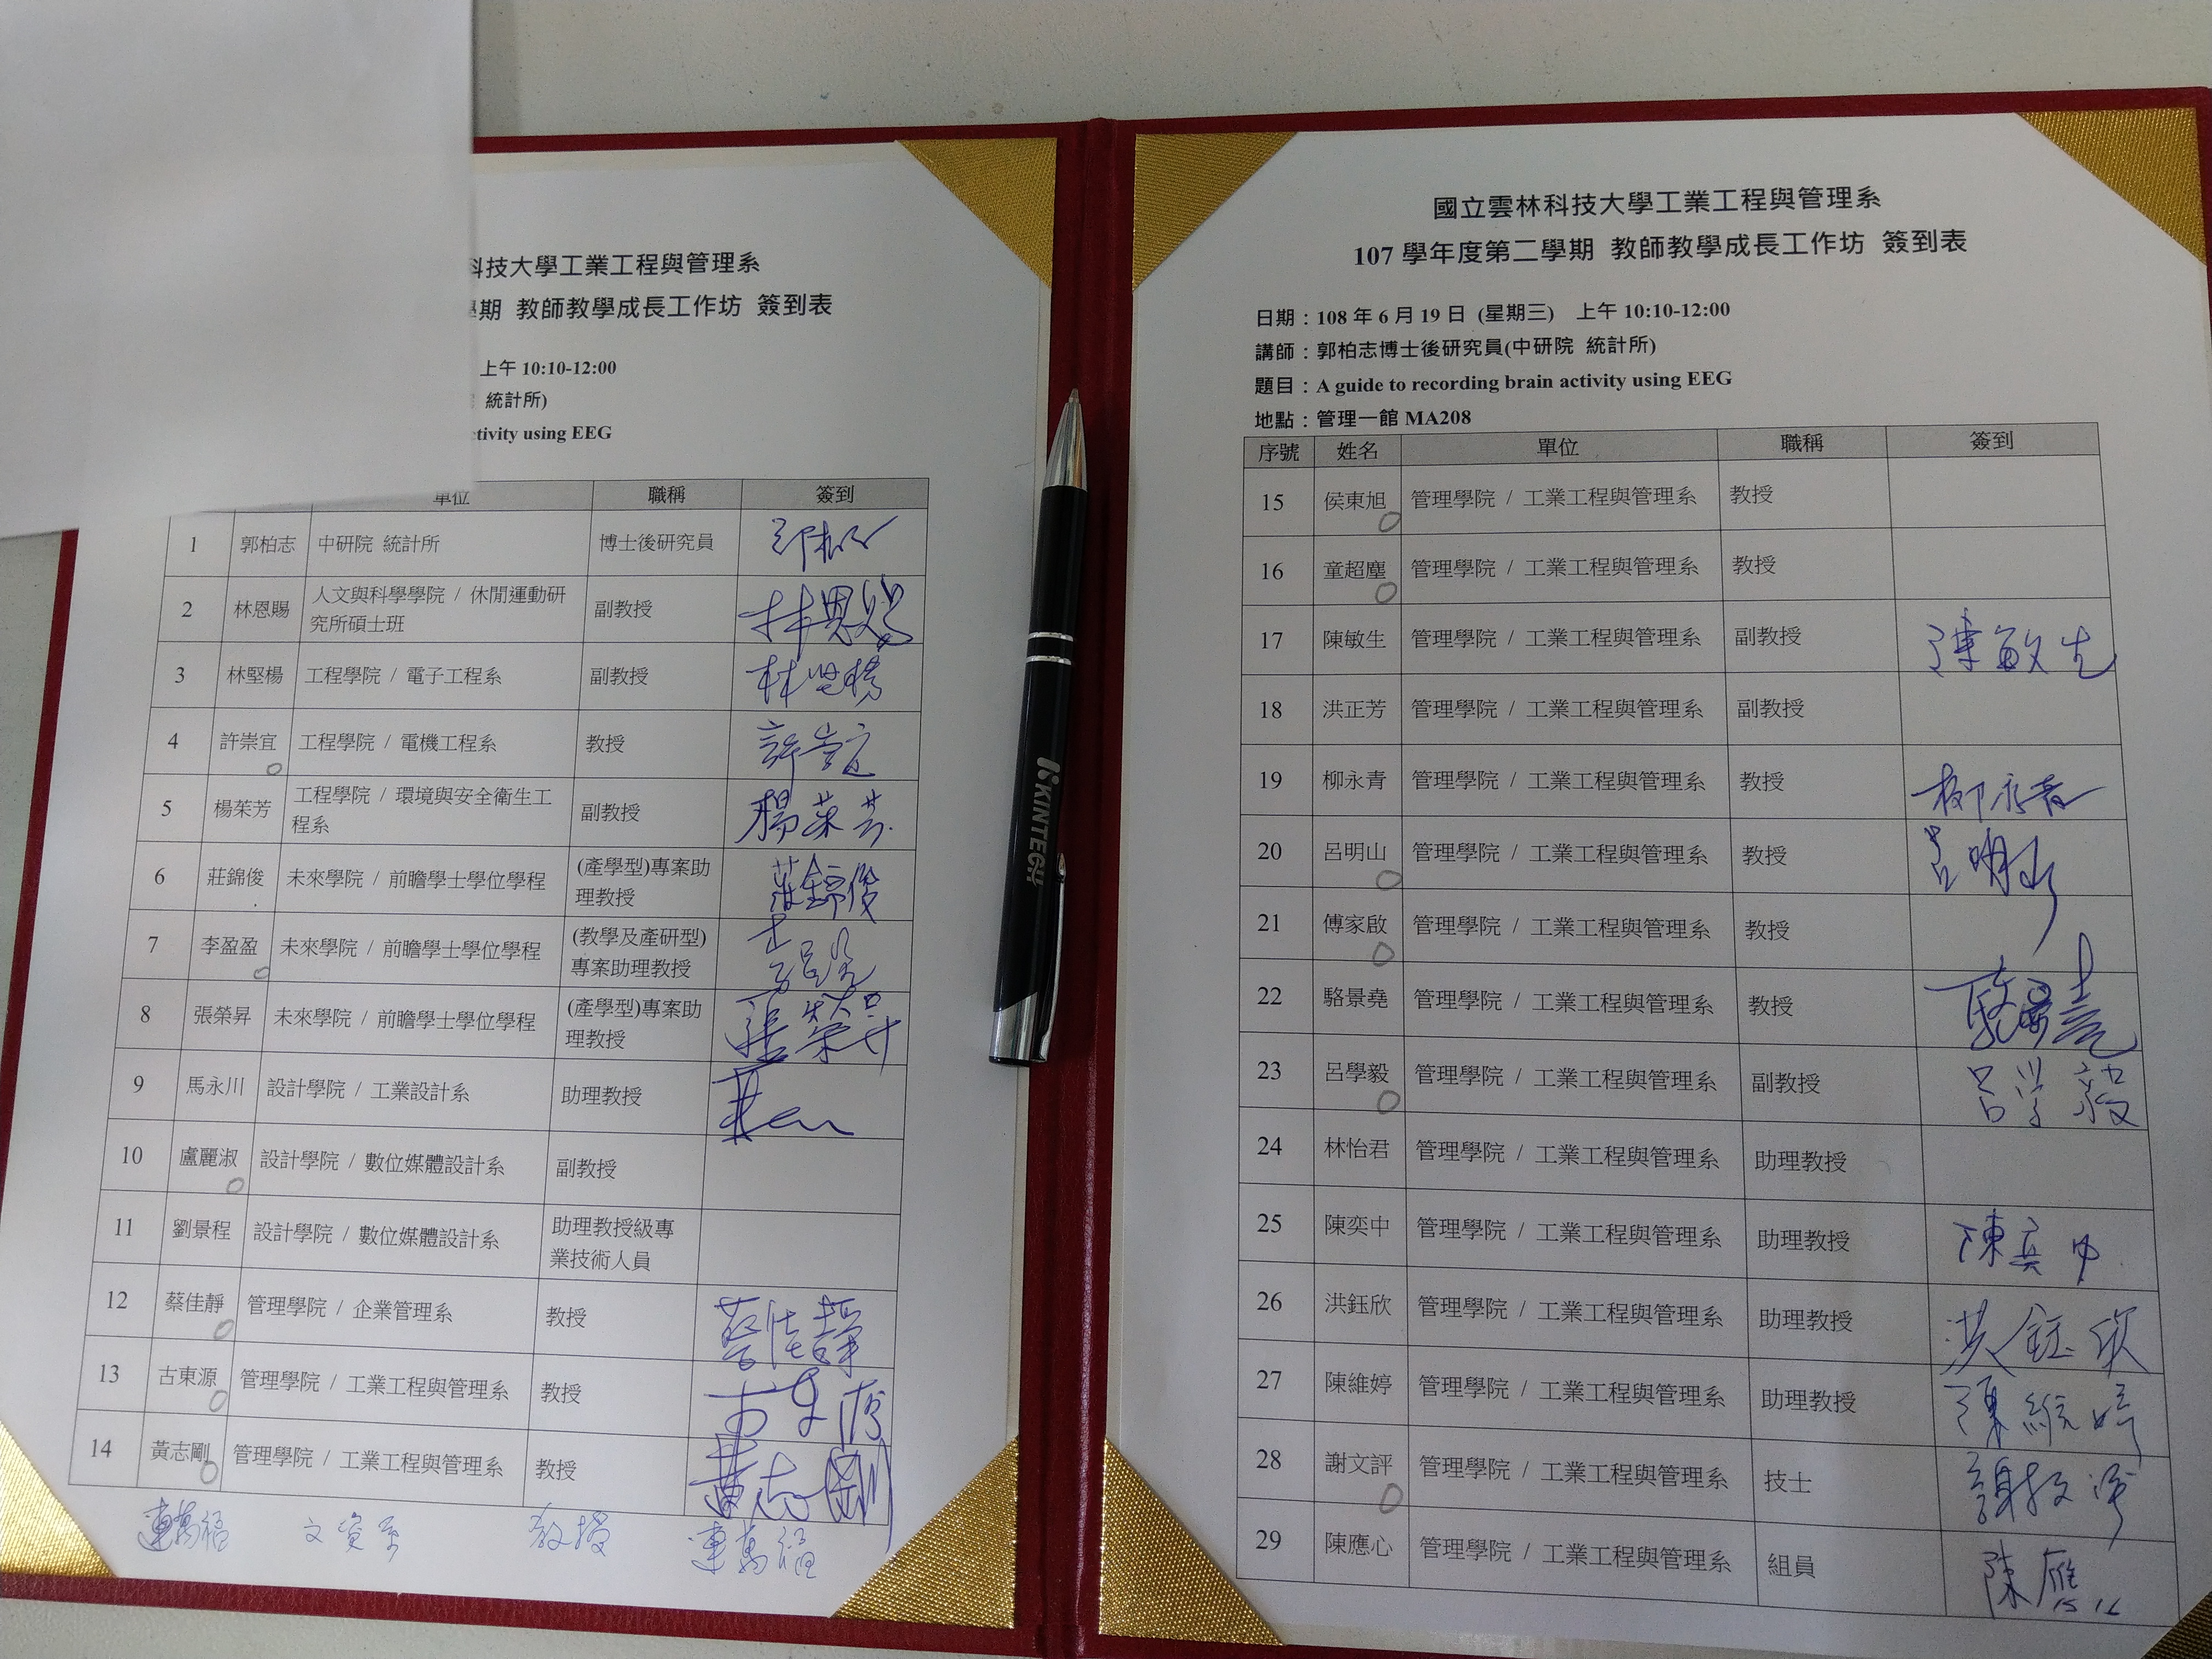 科技大學工業工程與管理系
學期 教師教學成長工作坊 簽到表
上午 10:10-12:00
統計所)
tivity using EEG
單位 職稱 簽到
1 郭柏志 中研院 統計所 博士後研究員 郭柏志
2 林恩賜 人文與科學學院 / 休閒運動研究所碩士班 副教授 林恩賜
3 林堅楊 工程學院 / 電子工程系 副教授 林堅楊
4 許崇宜 工程學院 / 電機工程系 教授 許崇宜
5 楊茱芳 工程學院 / 環境與安全衛生工程系 副教授 楊茱芳
6 莊錦俊 未來學院 / 前瞻學士學位學程 (產學型)專案助理教授 莊錦俊
7 李盈盈 未來學院 / 前瞻學士學位學程 (教學及產研型)專案助理教授
8 張榮昇 未來學院 / 前瞻學士學位學程 (產學型)專案助理教授 張榮昇
9 馬永川 設計學院 / 工業設計系 助理教授
10 盧麗淑 設計學院 / 數位媒體設計系 副教授
11 劉景程 設計學院 / 數位媒體設計系 助理教授級專業技術人員
12 蔡佳靜 管理學院 / 企業管理系 教授 蔡佳靜
13 古東源 管理學院 / 工業工程與管理系 教授 古東源
14 黃志剛 管理學院 / 工業工程與管理系 教授 黃志剛
連萬福 文資系 教授 連萬福
國立雲林科技大學工業工程與管理系
107 學年度第二學期 教師教學成長工作坊 簽到表
日期：108 年 6 月 19 日 (星期三) 上午 10:10-12:00
講師：郭柏志博士後研究員(中研院 統計所)
題目：A guide to recording brain activity using EEG
地點：管理一館 MA208
序號 姓名 單位 職稱 簽到
15 侯東旭 管理學院 / 工業工程與管理系 教授
16 童超塵 管理學院 / 工業工程與管理系 教授
17 陳敏生 管理學院 / 工業工程與管理系 副教授 陳敏生
18 洪正芳 管理學院 / 工業工程與管理系 副教授
19 柳永青 管理學院 / 工業工程與管理系 教授 柳永青
20 呂明山 管理學院 / 工業工程與管理系 教授 呂明山
21 傅家啟 管理學院 / 工業工程與管理系 教授
22 駱景堯 管理學院 / 工業工程與管理系 教授 駱景堯
23 呂學毅 管理學院 / 工業工程與管理系 副教授 呂學毅
24 林怡君 管理學院 / 工業工程與管理系 助理教授
25 陳奕中 管理學院 / 工業工程與管理系 助理教授 陳奕中
26 洪鈺欣 管理學院 / 工業工程與管理系 助理教授 洪鈺欣
27 陳維婷 管理學院 / 工業工程與管理系 助理教授 陳維婷
28 謝文評 管理學院 / 工業工程與管理系 技士 謝文評
29 陳應心 管理學院 / 工業工程與管理系 組員 陳應心
KINTECH